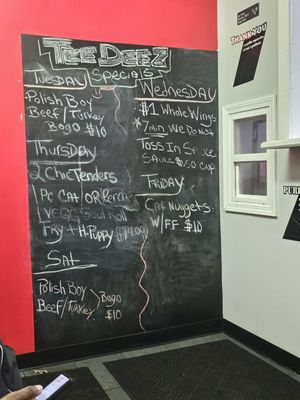 TEE DEEZ
Specials
Tuesday
Polish Boy
Beef/Turkey
BOGO $10
Thursday
2 Chic Tenders
1 PC Cat OR Perch
1 Vegg Soul Roll
Fry + H. Puppy $14.00
Sat
Polish Boy
Beef/Turkey > Bogo
$10
Wednesday
$1 Whole Wings
* 7 min We Do Not
Toss In Sauce
Sauce $.50 cup
Friday
Cat Nuggets
W/FF $10
THANK YOU